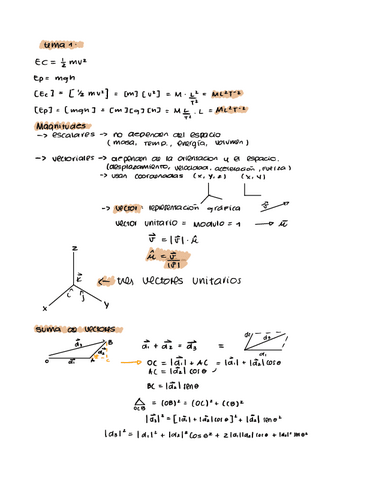 tema 1.
EC = ½ mv²
Ep = mgh
[Ec] = [½ mv²] = [m] [v²] = M · L²/T² = ML²T⁻²
[Ep] = [mgh] = [m][g][h] = M L/T² · L = ML²T⁻²
Magnitudes
→ escalares → no dependen del espacio
(masa, temp., energía, volumen)
→ vectoriales → dependen de la orientacion y el espacio.
(desplazamiento, velocidad, aceleración, fuerza)
→ usan coordenadas (x, y, z) (x, y)
→ vector = representación gráfica
vector unitario = modulo = 1 → û
v⃗ = |v⃗| · û
û = v⃗/|v⃗|
z
k
← tres vectores unitarios
i j
x y
suma de vectores
d⃗₁ + d⃗₂ = d⃗₃ =
d₂
d₁
B
d⃗₃
O d⃗₁ A C
→ OC = |d⃗₁| + AC = |d₁| + |d₂|cosθ
AC = |d⃗₂| cosθ
BC = |d₂| senθ
OCB = (OB)² = (OC)² + (CB)²
|d⃗₃|² = [|d₁| + |d₂|cosθ]² + |d₂| senθ²
|d₃|² = |d₁|² + |d₂|² cosθ² + 2|d₁||d₂|cosθ + |d₂|² senθ²